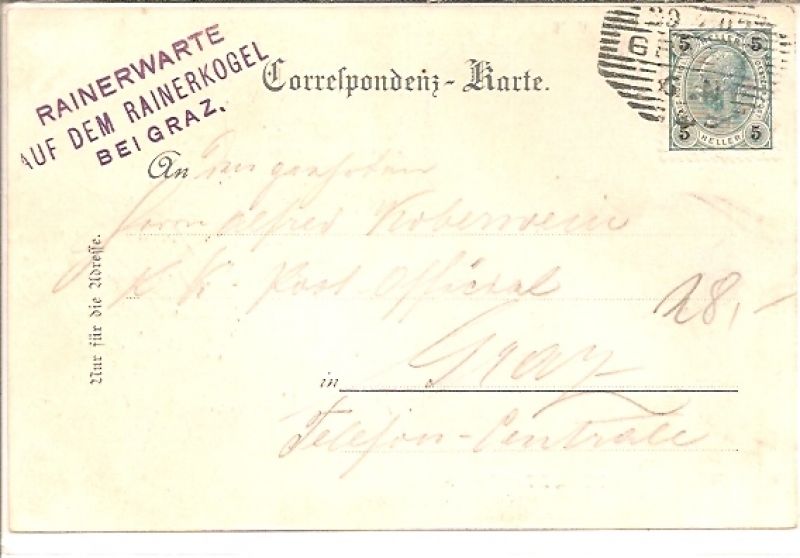 RAINERWARTE
AUF DEM RAINERKOGEL
BEI GRAZ.
Correspondenz-Karte.
5 HELLER 5
5 HELLER 5
An
Herrn Alfred Koberwein
K. K. Post Official
18,-
in Graz
Telefon-Centrale
Nur für die Adresse.